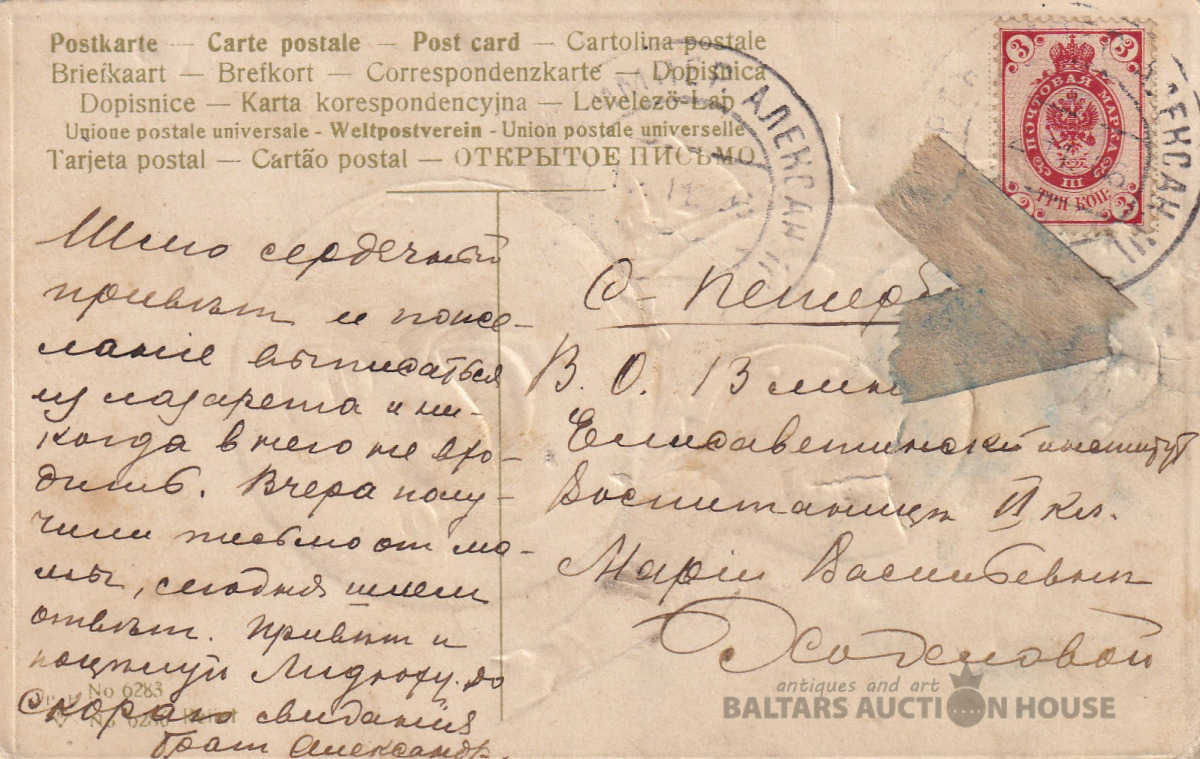 Postkarte — Carte postale — Post card — Cartolina postale
Briefkaart — Brefkort — Correspondenzkarte — Dopisnica
Dopisnice — Karta korespondencyjna — Levelező-Lap
Unione postale universale - Weltpostverein - Union postale universelle
Tarjeta postal — Cartão postal — ОТКРЫТОЕ ПИСЬМО
3 3
ПОЧТОВАЯ МАРКА
III
ТРИ КОП.
АЛЕКСАН
ЕКСАН
Шлю сердечный
привѣт и поже-
лание выписаться
из лазарета и ни-
когда в него не вхо-
дить. Вчера полу-
чили письмо от ма-
мы, сегодня шлем
отвѣт. Привѣт и
поцѣлуй Лидюху. до
скораго свидания
брат Александр.
С-Петерб
В. О. 13 лин
Елисаветинский институт
Воспитанице II кл.
Маріи Васильевне
Ходеновой
No 6283
antiques and art
BALTARS AUCTION HOUSE